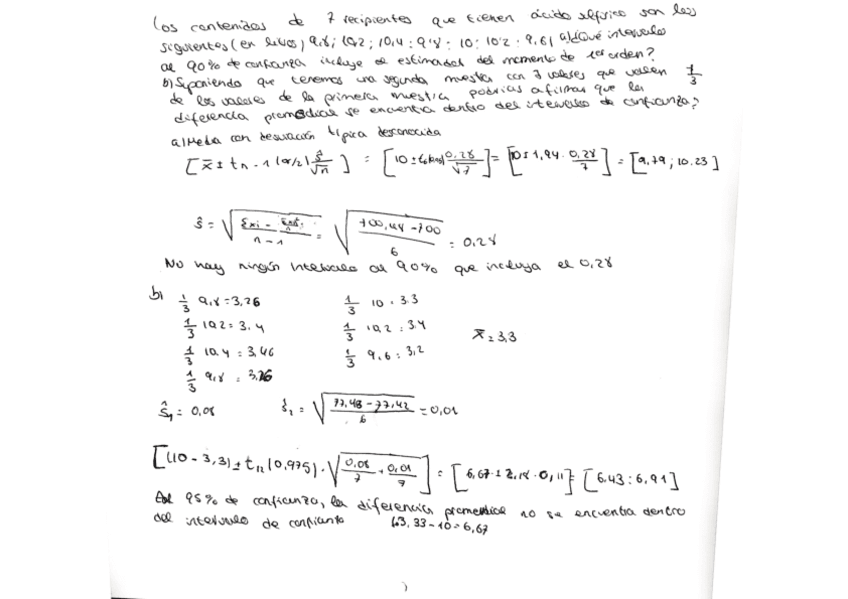 Los contenidos de 7 recipientes que tienen ácido sulfúrico son los
siguientes (en litros) 9,8; 10,2; 10,4; 9'8; 10; 10'2; 9,6) a) ¿Qué intervalo
al 90% de confianza incluye el estimador del momento de 1er orden?
b) Suponiendo que tenemos una segunda muestra con 7 valores que valen 1/3
de los valores de la primera muestra podrías afirmar que la
diferencia promedio se encuentra dentro del intervalo de confianza?
a) Media con desviación típica desconocida
[x̄ ± tn-1 (α/2) ŝ/√n] = [10 ± 0,28/√7] = [10 ± 1,94 · 0,28/7] = [9,79; 10.23]
ŝ = √(Σxi - / n-1) = √(700,44 - 700 / 6) = 0,28
No hay ningún intervalo al 90% que incluya el 0,28
b) 1/3 9,8 = 3,26 1/3 10 = 3.3
1/3 10,2 = 3,4 1/3 10,2 = 3,4 x̄ = 3,3
1/3 10,4 = 3,46 1/3 9,6 = 3,2
1/3 9,8 = 3,26
ŝ1 = 0,08 ŝ2 = √(77,48 - 77,42 / 6) = 0,01
[(10 - 3,3) ± t12 (0,975) · √(0,08/7 + 0,01/7)] = [6,67 ± 2,18 · 0,11] = [6,43 ; 6,91]
95% de confianza, la diferencia promedio no se encuentra dentro
del intervalo de confianza 3,33 - 10 = 6,67
)